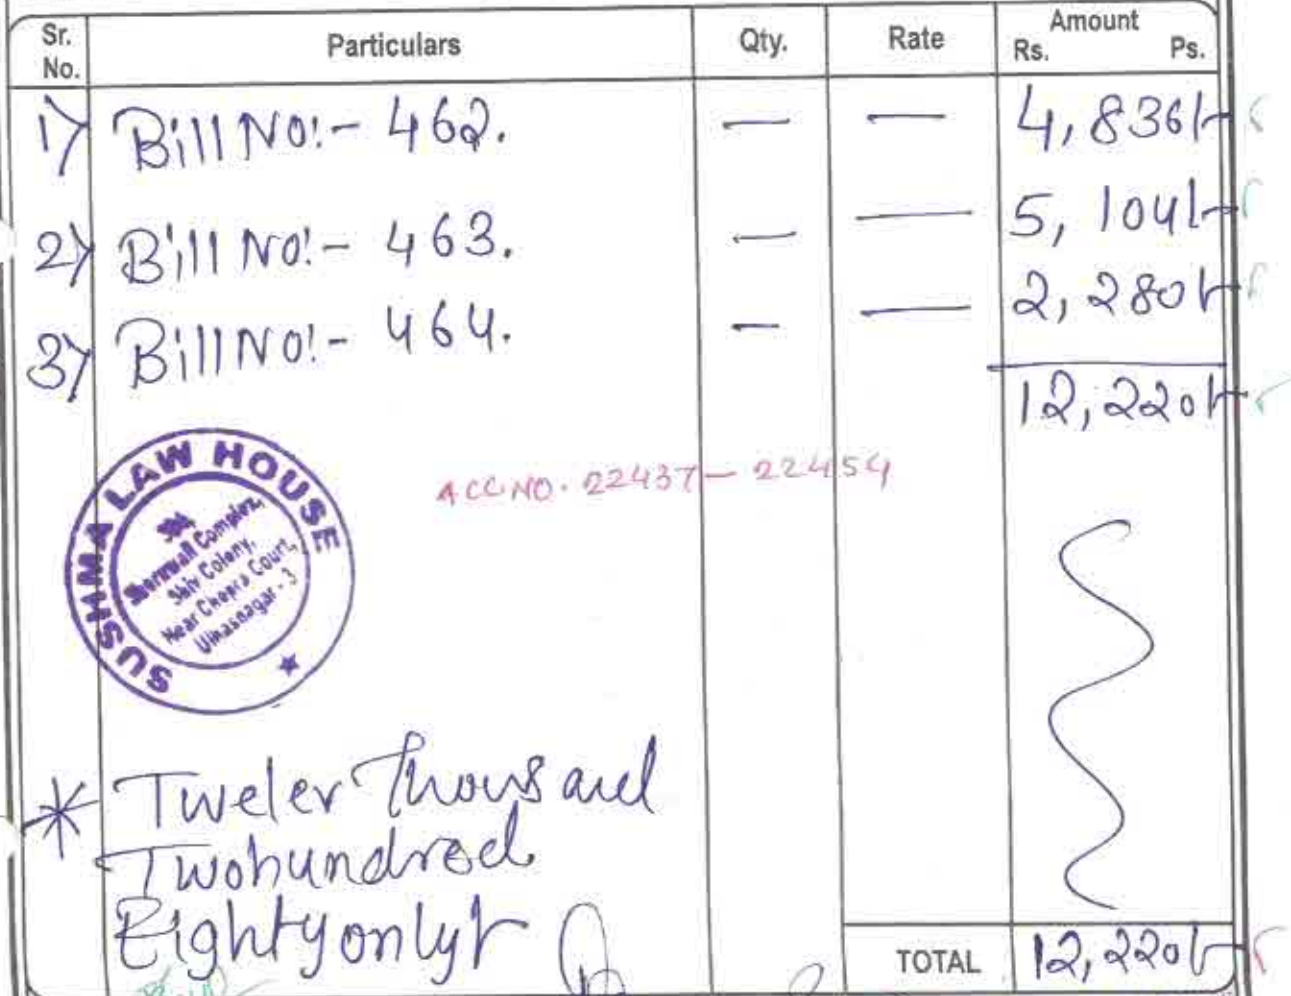 Sr. No. Particulars Qty. Rate Amount Rs. Ps.
1) Bill No:- 462. — — 4,836/-
2) Bill No:- 463. — — 5,104/-
3) Bill No:- 464. — — 2,280/-
12,220/-
ACC.NO. 22437 - 22454
SUSHMA LAW HOUSE
Complex,
Shiv Colony,
Near Chopra Court,
Ulhasnagar - 3
* Twelev Thousand
Twohundred
Eighty only/-
TOTAL 12,220/-